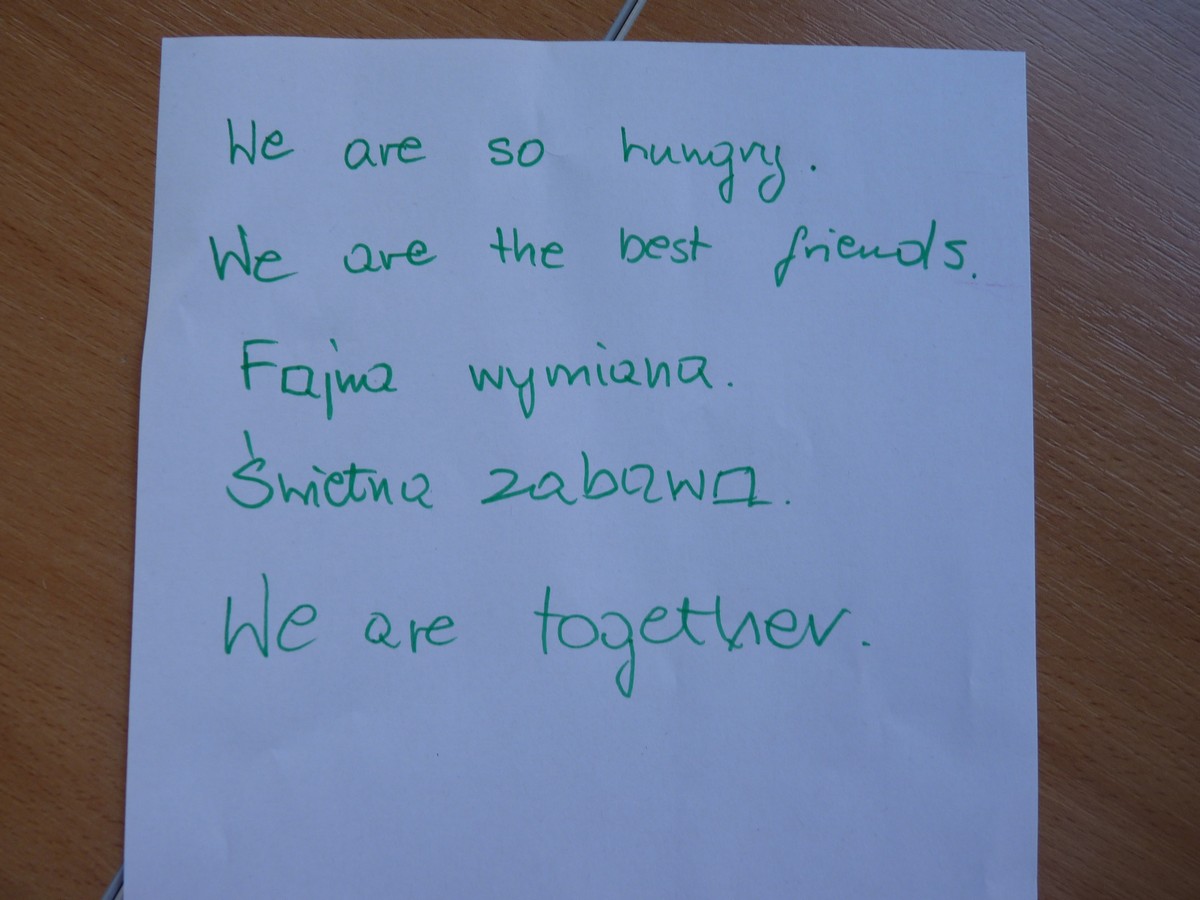 We are so hungry.
We are the best friends.
Fajna wymiana.
Świetna zabawa.
We are together.